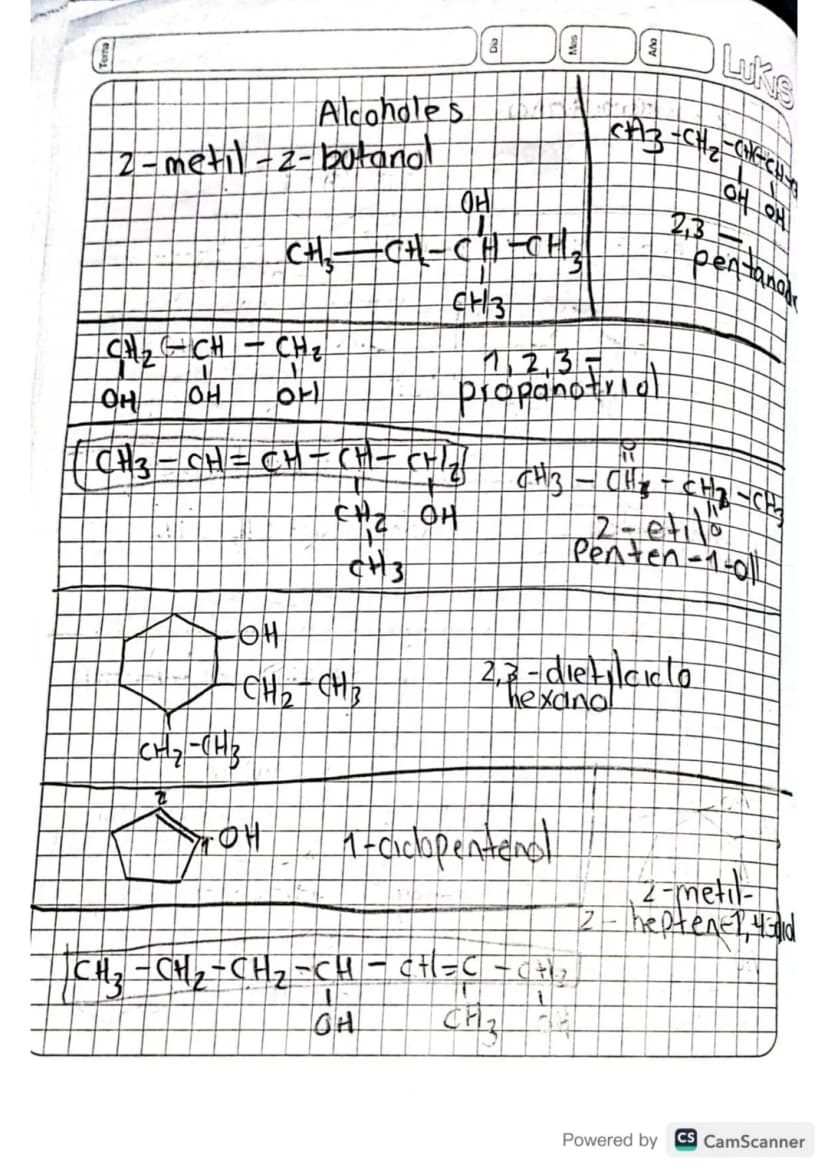 Tema
Dia
Mes
Año
LuKis
Alcoholes
2-metil-2-butanol
OH
CH3—CH-CH-CH3
CH3
CH3-CH2-CH-CH-
OH OH
2,3-
CH2-CH-CH2
OH OH OH
1,2,3-
propanotriol
CH3-CH=CH-CH-CH2
CH2 OH
CH3
CH3-
-CH3
2-etil
Penten-1-oll
OH
CH2-CH3
CH2-CH3
2,3-dietilciclo
hexanol
2
1-OH
1-ciclopentenol
2-metil-
2-
CH3-CH2-CH2-CH-CH=C-CH2
OH
CH3
Powered by CS CamScanner